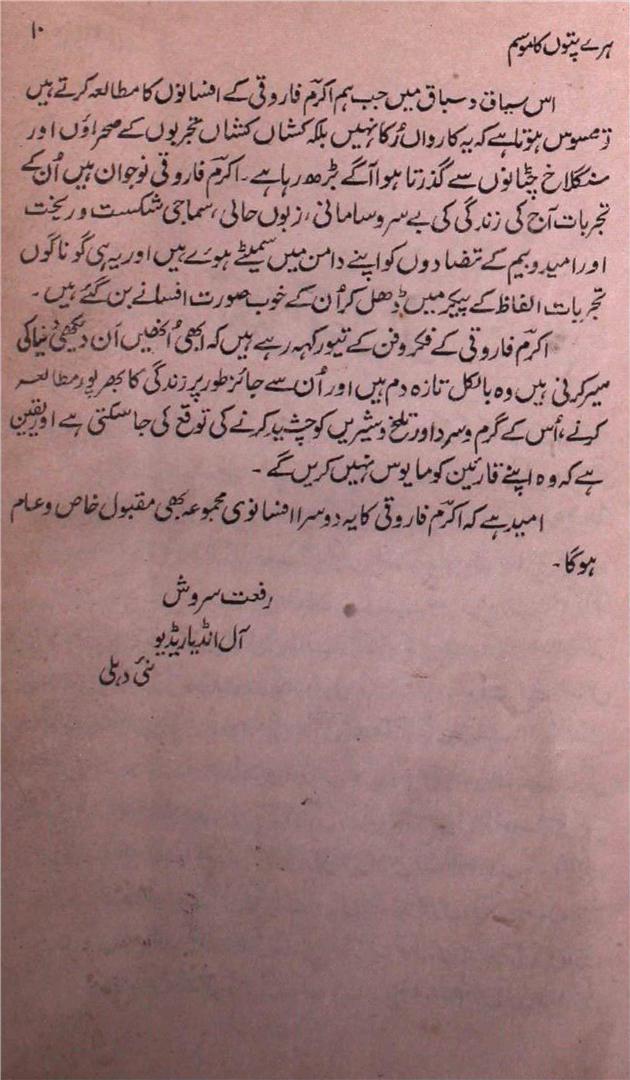 ہرے پتوں کا موسم
۱۰
اس سیاق و سباق میں جب ہم اکرم فاروقی کے افسانوں کا مطالعہ کرتے ہیں
تو محسوس ہوتا ہے کہ یہ کارواں رُکا نہیں بلکہ کشاں کشاں تجربوں کے صحراؤں اور
سنگلاخ چٹانوں سے گذرتا ہوا آگے بڑھ رہا ہے۔ اکرم فاروقی نوجوان ہیں اُن کے
تجربات آج کی زندگی کی بے سروسامانی، زبوں حالی، سماجی شکست و ریخت
اور امید و بیم کے تضادوں کو اپنے دامن میں سمیٹے ہوئے ہیں اور یہ ہی گوناگوں
تجربات الفاظ کے پیکر میں ڈھل کر اُن کے خوب صورت افسانے بن گئے ہیں۔
اکرم فاروقی کے فکر و فن کے تیور کہہ رہے ہیں کہ ابھی اُنھیں اَن دیکھی دُنیا کی
سیر کرنی ہیں وہ بالکل تازہ دم ہیں اور اُن سے جائز طور پر زندگی کا بھرپور مطالعہ
کرنے، اُس کے گرم و سرد اور تلخ و شیریں کو چشید کرنے کی توقع کی جا سکتی ہے اور یقین
ہے کہ وہ اپنے قارئین کو مایوس نہیں کریں گے۔
امید ہے کہ اکرم فاروقی کا یہ دوسرا افسانوی مجموعہ بھی مقبول خاص و عام
ہو گا۔
رفعت سروش
آل انڈیا ریڈیو
نئی دہلی